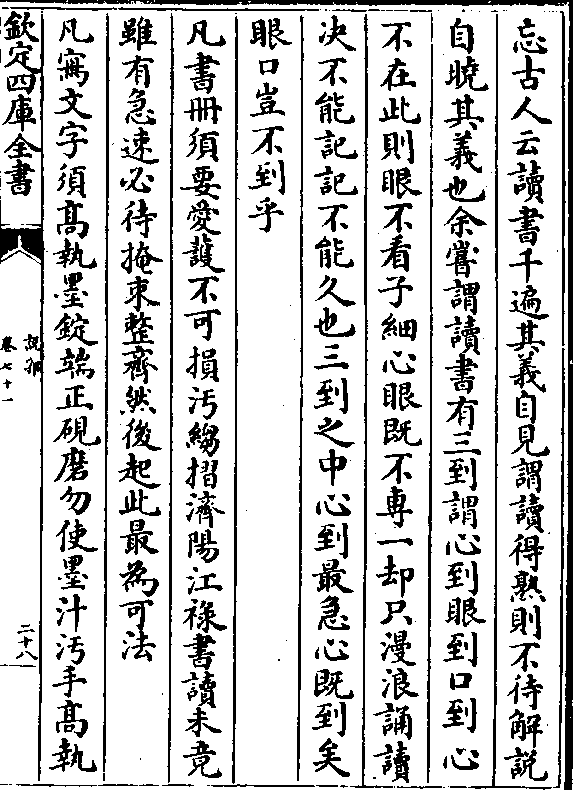 忘古人云讀書千遍其義自見謂讀得熟則不待解說
自曉其義也余嘗謂讀書有三到謂心到眼到口到心
不在此則眼不看子細心眼既不專一却只漫浪誦讀
決不能記記不能久也三到之中心到最急心既到矣
眼口豈不到乎
凡書冊須要愛護不可損汚縐摺濟陽江祿書讀未竟
雖有急速必待掩束整齊然後起此最為可法
凡寫文字須髙執墨錠端正硯磨勿使墨汁汚手髙執
欽定四庫全書
說郛
卷七十一
二十八